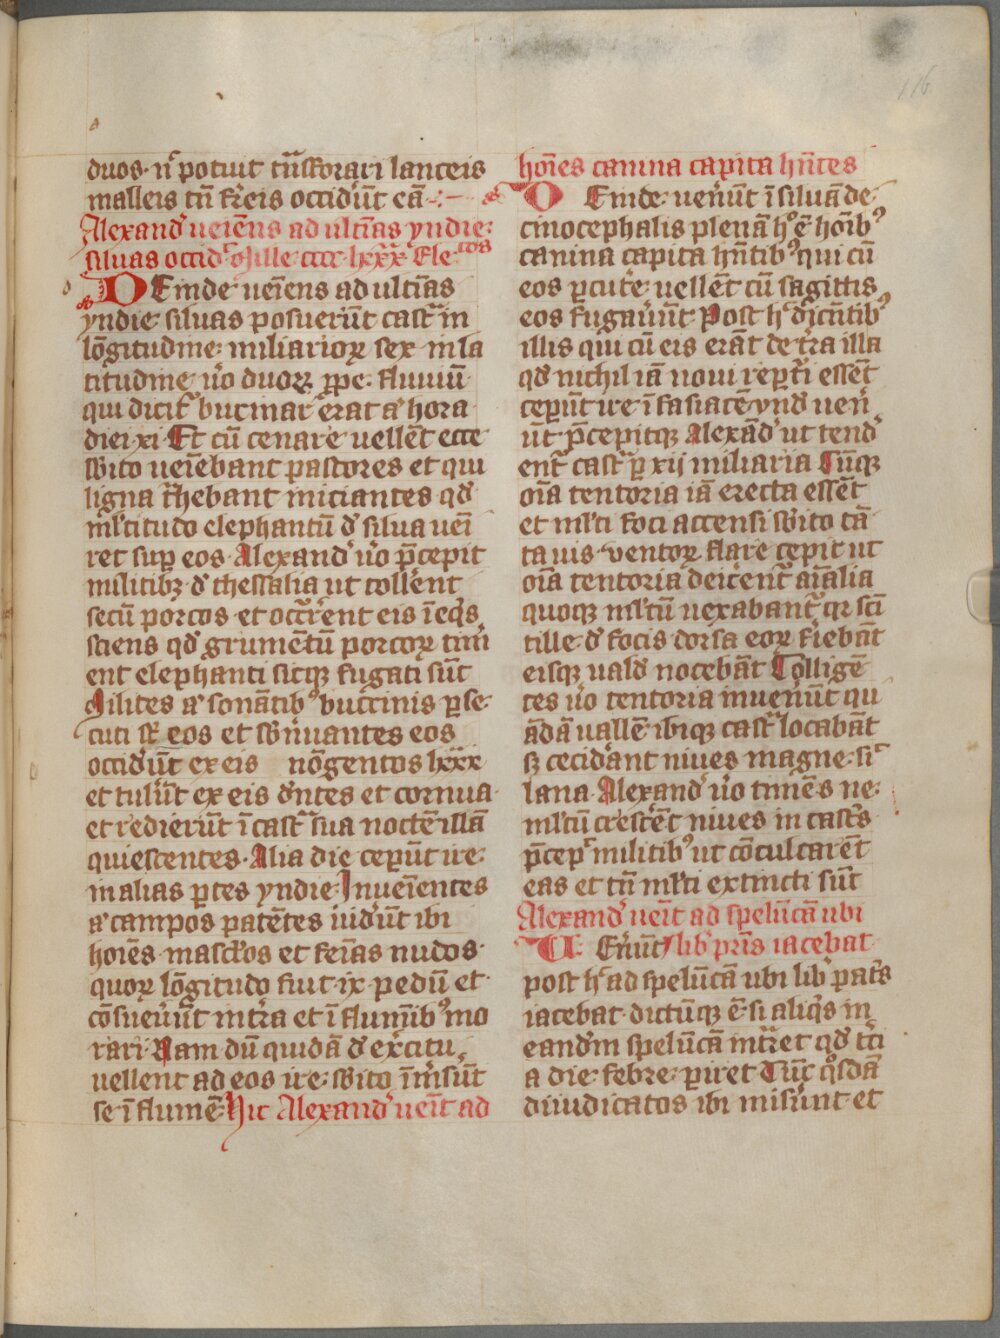 116
duos· nͦ potuit trãsforari lanceis
malleis tñ ferreis occider̃ut eã
Alexand̃ ueiẽns ad ultĩas yndie
siluas occid̃ Mille cccc lxxx Eleᶜᵒˢ
DEinde ueĩens ad ultĩas
yndie siluas posuerũt castᷓ in
lõgitudine miliarioꝝ sex in la
titudine ũo duoꝝ ꝓpe fluuiũ
qui dicit᷑ bucinar erat aͭ hora
diei xi Et cũ cenare uellẽt ecce
sƀito ueĩebant pastores et qui
ligna tᷓhebant iniciantes qđ
ml̃titudo elephantũ đ silua ueĩ
ret sup eos· Alexand̃ ũo p̃cepit
militibꝫ đ thessalia ut toll̃ent
secũ porcos et occr̃rent eis ĩ eqͥs
sciens qđ grumẽtũ porcoꝝ tim̃
ent elephanti sicqꝫ fugati sũt
Milites aͭ sonãtibꝰ buccinis ꝑse
cuti st̃ eos et sƀneruantes eos
occider̃ut ex eis nõgentos lxxx
et tuler̃ut ex eis d̃ntes et cornua
et redierũt ĩ castᷓ sua noctẽ illã
quiescentes· Alia die ceperũt ire
in alias ꝑtes yndie Inueĩentes
aͭ campos patẽtes uider̃ut ibi
hoĩes mascl̃os et feĩas nudos·
quoꝝ lõgitudo fuit ix pedũ et
cõsueuer̃ut intr̃a et ĩ flumĩbꝰ mo
rari Nam dũ quidã đ ex̃citu
uellent ad eos ire sƀito ĩmserũt
se ĩ flumẽ Hic Alexand̃ ueĩt ad
hoĩes canina capita hñtes
DEinde uener̃ut ĩ siluã de
cinocephalis plenã hͦ ẽ hoĩbꝰ
canina capita hñtibꝰ qui cũ
eos ꝑcute᷑ uellẽt cũ sagittis
eos fugauer̃ut Post hͦ dicẽtibꝰ
illis qui cũ eis erãt de tr̃a illa
qđ nichil iã noui rep̃ti essẽt
ceperũt ire ĩ fasiacẽ ynd̃ uen̾
ũt p̃cepitqꝫ Alexãd̃ ut tend̾
ent᷑ castᷓ ꝑ xij miliaria Cũqꝫ
oĩa tentoria iã erecta essẽt
et ml̃ti foci accensi sƀito tã
ta uis uentoꝝ flare cepit ut
oĩa tentoria deic̃ent᷑ aĩalia
quoqꝫ ml̃tũ uexabant᷑ qꝛ sci
tille đ focis dorsa eoꝝ feriebãt
eisqꝫ uald̃ nocebãt Colligẽ
tes ũo tentoria inuener̃ut qu
ãdã uallẽ ibiqꝫ castᷓ locabãt
sꝫ cecid̾ant niues magne sic̃
lana Alexand̃ ũo timẽs ne
ml̃tũ crescẽt niues in castr̃s
p̃cep̃ militibꝰ ut cõculcarẽt
eas et tñ ml̃ti extincti sũt
Alexand̃ ueĩt ad spelũcã ubi
UEnerũt liƀ pñs iacebat
post hͦ ad spelũcã ubi liƀ pat̃s
iacebat dictũqꝫ ẽ si aliqͥs in
eand̃m spelũcã intr̃et qđ tc̃i
a die febre ꝑiret Tũc qͦsdã
diiudicatos ibi miser̃unt et